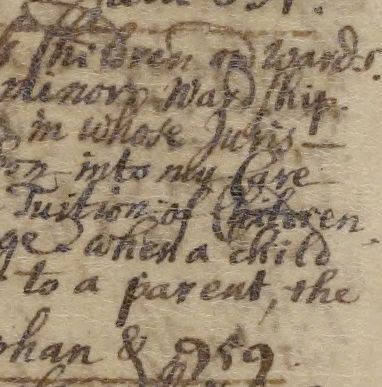 Children or Wards.
minors Wardship.
in whose Juris—
into my Care
Tuition of Children
when a child
to a parent, the
phan & 959